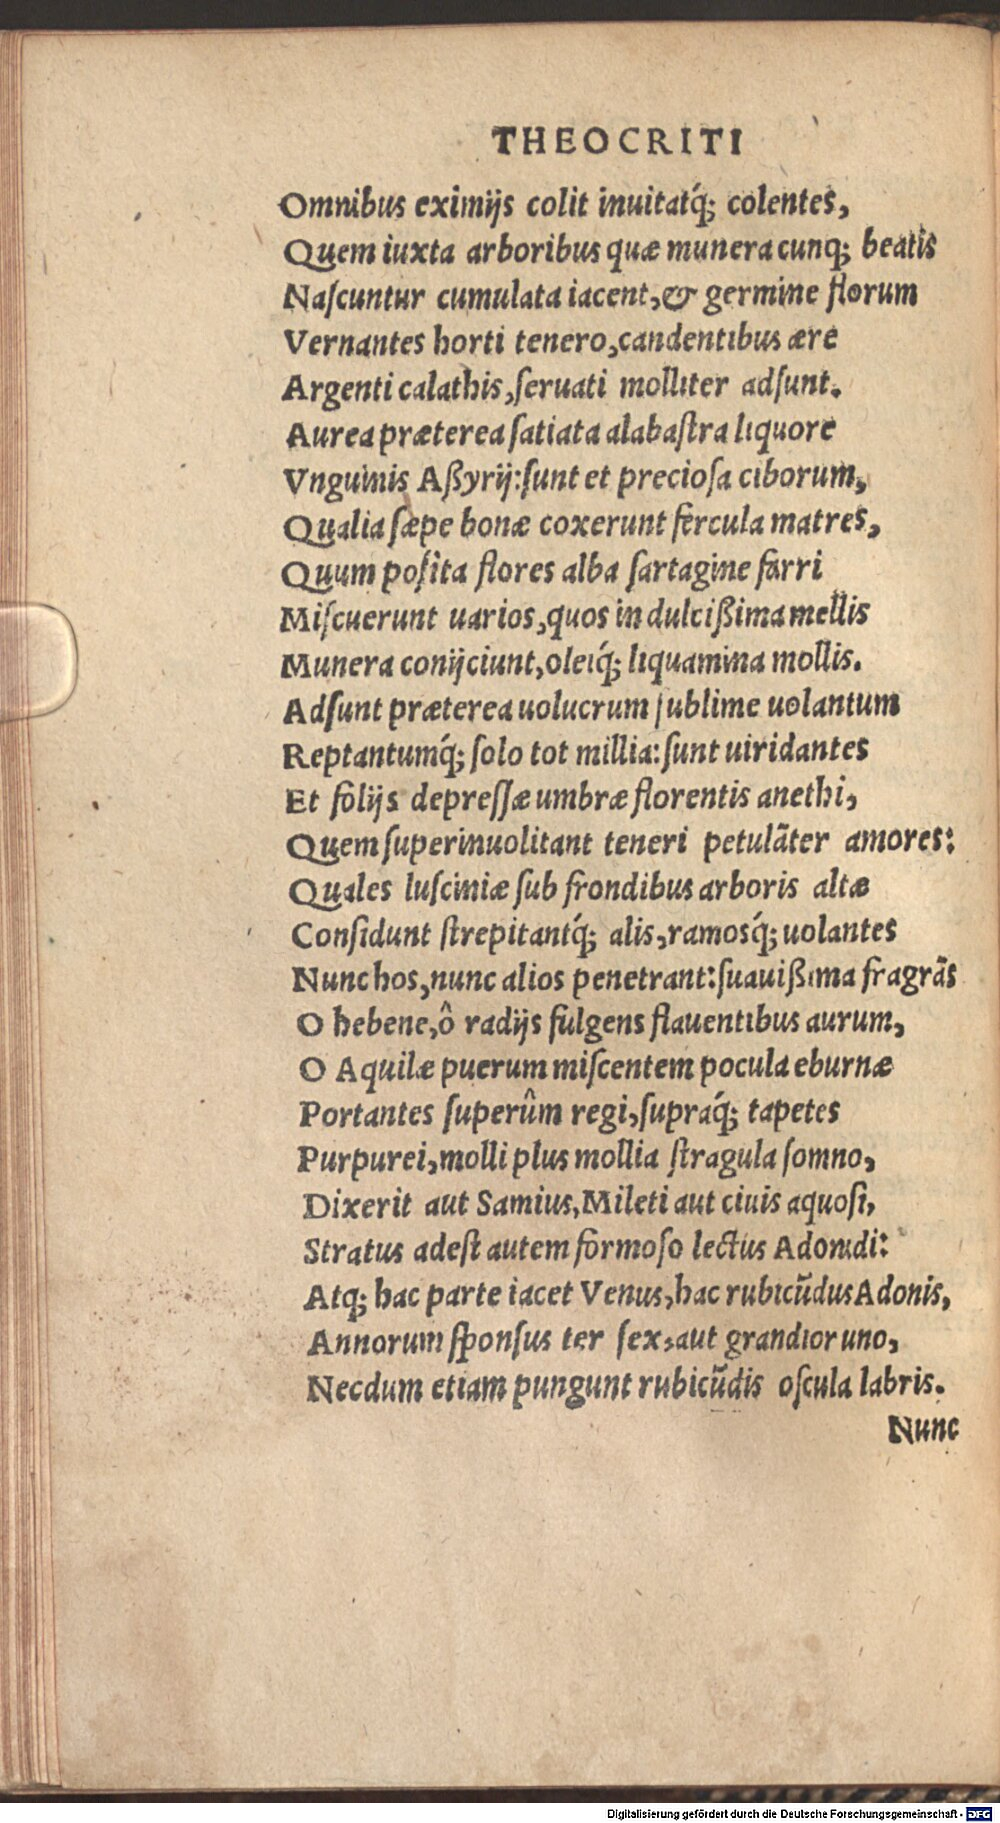 THEOCRITI
Omnibus eximijs colit inuitatq́; colentes,
Quem iuxta arboribus quæ munera cunq; beatis
Naſcuntur cumulata iacent, & germine florum
Vernantes horti tenero, candentibus ære
Argenti calathis, ſeruati molliter adſunt.
Aurea præterea ſatiata alabaſtra liquore
Vnguinis Aßyrij: ſunt et precioſa ciborum,
Qualia ſæpe bonæ coxerunt fercula matres,
Quum poſita flores alba ſartagine farri
Miſcuerunt uarios, quos in dulcißima mellis
Munera conijciunt, oleiq́; liquamina mollis.
Adſunt præterea uolucrum ſublime uolantum
Reptantumq́; ſolo tot millia: ſunt uiridantes
Et folijs depreſſæ umbræ florentis anethi,
Quem ſuperinuolitant teneri petulãter amores:
Quales luſciniæ ſub frondibus arboris altæ
Conſidunt ſtrepitantq́; alis, ramosq́; uolantes
Nunc hos, nunc alios penetrant: ſuauißima fragrãs
O hebene, ô radijs fulgens flauentibus aurum,
O Aquilæ puerum miſcentem pocula eburnæ
Portantes ſuperûm regi, ſupraq́; tapetes
Purpurei, molli plus mollia ſtragula ſomno,
Dixerit aut Samius, Mileti aut ciuis aquoſi,
Stratus adeſt autem formoſo lectus Adonidi:
Atq; hac parte iacet Venus, hac rubicũdus Adonis,
Annorum ſponſus ter ſex, aut grandior uno,
Necdum etiam pungunt rubicũdis oſcula labris.
Nunc
Digitalisierung gefördert durch die Deutsche Forschungsgemeinschaft - DFG